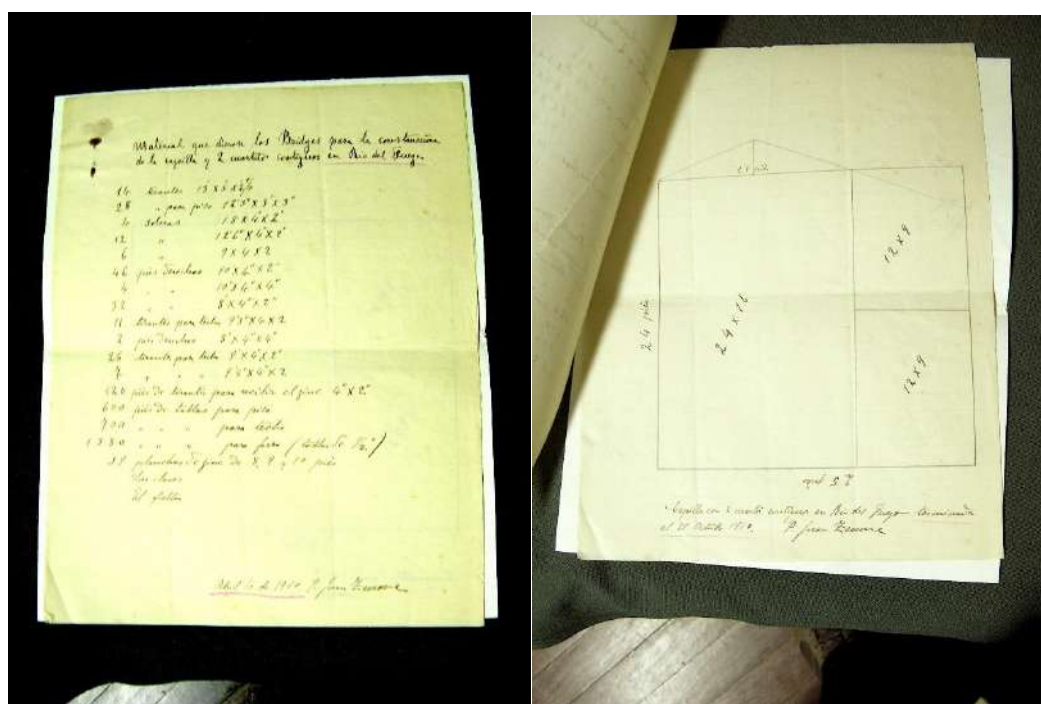 Material que dieron los Bridges para la construccion
de la capilla y 2 cuartitos contiguos en Rio del Fuego
14 tirantes
28 " para piso 12'3"X3"X3"
soleras 18X4"X2"
12 " 12'6"X4"X2"
6 " 9X4X2
46 pies derechos 10X4"X2"
4 " " 10'X4"X4"
32 " " 8'X4"X2"
tirantes para techo X4X2
2 pies derechos 8'X4"X4"
26 tirantes para techo X4"X2"
7 " " " X4"X2
pies de tirantes para recibir el zinc 4"X2"
600 pies de tablas para piso
700 " " " para techo
" " " para forro (tablas de ½")
planchas de zinc de 8, 9 y 10 pies
Los clavos
El fieltro
de 1910 P. Juan Zenone
24 pies
24 X 16
12 X 9
12 X 9
25 pies
Capilla con 2 contiguos en Rio del Fuego
el Octubre 1910. P. Juan Zenone